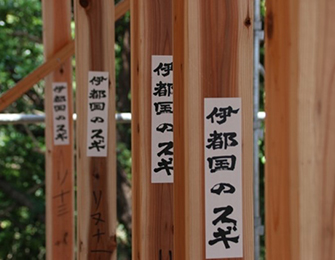 伊都国のスギ
伊都国のスギ
伊都国のスギ
伊都国のスギ